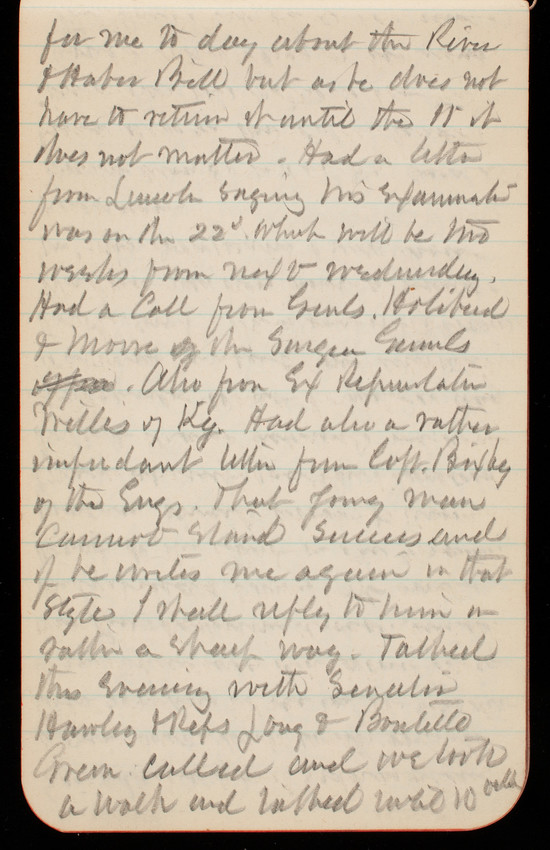 for me to day about the River
& Harbor Bill but as he does not
have to return it until the 15 it
does not matter. Had a letter
from Lincoln saying his examinati
was on the 22d. which will be two
weeks from next wednesday.
Had a Call from Genls. Holibird
& Moore of the Surgeon Generals
office. Also from Ex Representative
Willis of Ky. Had also a rather
impudent letter from Capt. Bixby
of the Engs. That young man
Cannot stand success and
if he writes me again in that
style I shall reply to him in
rather a sharp way. Talked
this evening with Senator
Hawley & Reps Long & Boutelle
Green called and we took
a walk and talked until 10 oclk